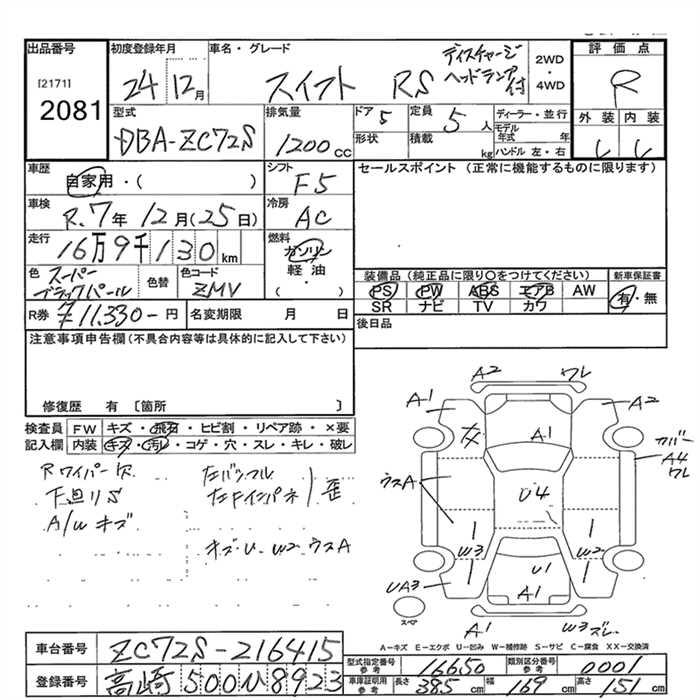 出品番号
[2171]
2081
初度登録年月
24 12月
車名・グレード
スイフト RS
ディスチャージ
ヘッドランプ付
2WD
・
4WD
評価点
R
外装 内装
型式
DBA-ZC72S
排気量
1200cc
ドア 5
定員 5人
形状
積載 kg
ディーラー・並行
モデル年式 年
ハンドル 左・右
車歴
自家用・( )
シフト
F5
セールスポイント (正常に機能するものに限ります)
車検
R.7年 12月(25日)
冷房
AC
走行
16万9千130km
燃料
ガソリン
軽油
( )
色
スーパー
ブラックパール
色替
色コード
ZMV
装備品(純正品に限り○をつけてください)
PS PW ABS エアB AW
SR ナビ TV カワ
新車保証書
有・無
R券 ¥11,330-円
名変期限 月 日
後日品
注意事項申告欄(不具合内容等は具体的に記入して下さい)
修復歴 有 〔箇所 〕
検査員 FW キズ・飛石・ヒビ割・リペア跡・×要
記入欄 内装 キズ・汚レ・コゲ・穴・スレ・キレ・破レ
Rワイパー欠
下廻りS
A/W キズ
左Fインパネ
歪
キズ・U W2 ウスA
A2 ワレ
A1 A2
A1
カバー
A4
ワレ
ウスA
U4
W3 W2
U1
UA3
A1
A1 W3 ズレ
スペア
A-キズ E-エクボ U-凹み W-補修跡 S-サビ C-腐食 XX-交換済
車台番号 ZC72S-216415
登録番号 高崎 500 ぬ 8923
型式指定番号 参考 16650
類別区分番号 参考 0001
車庫証明用 参考 長さ 385cm 幅 169cm 高さ 151cm